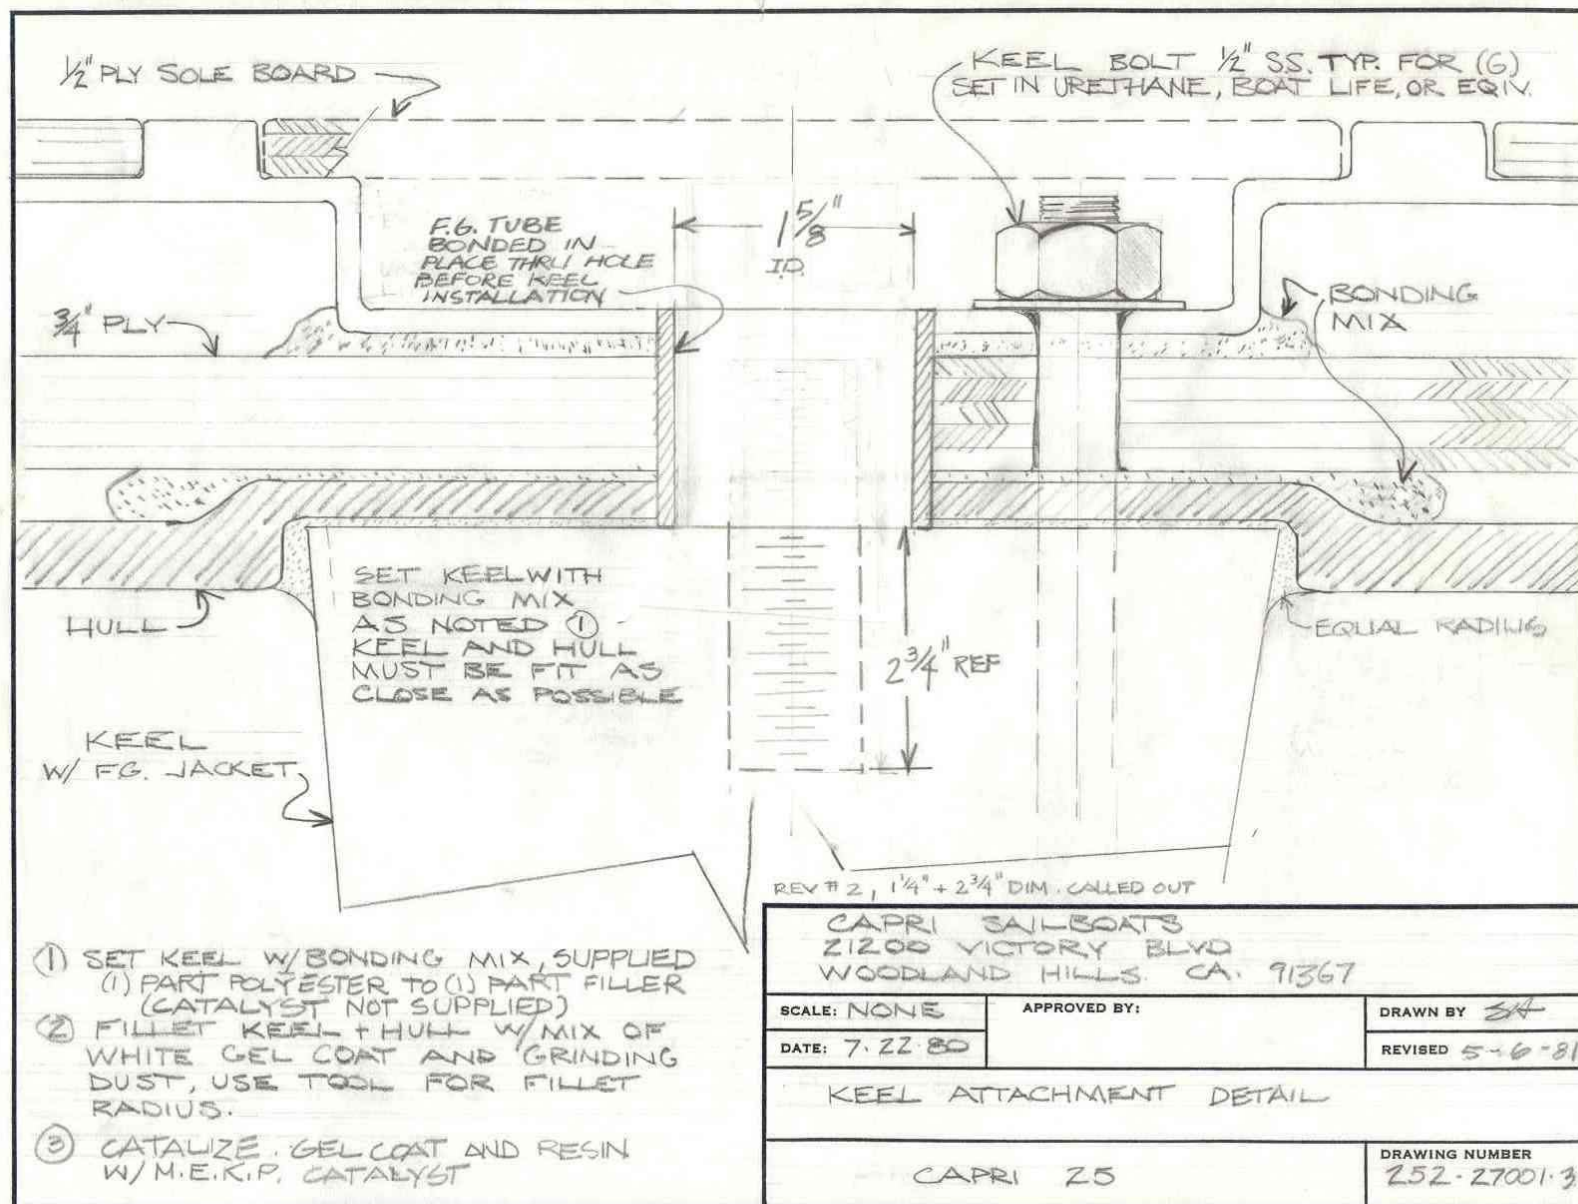 1/2" PLY SOLE BOARD
KEEL BOLT 1/2" S.S. TYP. FOR (6)
SET IN URETHANE, BOAT LIFE, OR EQIV.
F.G. TUBE
BONDED IN
PLACE THRU HOLE
BEFORE KEEL
INSTALLATION
1 5/8"
I.D.
BONDING
MIX
3/4" PLY
SET KEEL WITH
BONDING MIX
AS NOTED ①
KEEL AND HULL
MUST BE FIT AS
CLOSE AS POSSIBLE
HULL
EQUAL RADIUS
2 3/4" REF
KEEL
W/ FG. JACKET
REV # 2, 1 1/4" + 2 3/4" DIM. CALLED OUT
① SET KEEL W/BONDING MIX, SUPPLIED
(1) PART POLYESTER TO (1) PART FILLER
(CATALYST NOT SUPPLIED)
② FILLET KEEL + HULL W/MIX OF
WHITE GEL COAT AND GRINDING
DUST, USE TOOL FOR FILLET
RADIUS.
③ CATALIZE GEL COAT AND RESIN
W/ M.E.K.P. CATALYST
CAPRI SAILBOATS
21200 VICTORY BLVD
WOODLAND HILLS. CA. 91367
SCALE: NONE
APPROVED BY:
DRAWN BY
DATE: 7.22.80
REVISED 5-6-81
KEEL ATTACHMENT DETAIL
CAPRI 25
DRAWING NUMBER
252-27001.3